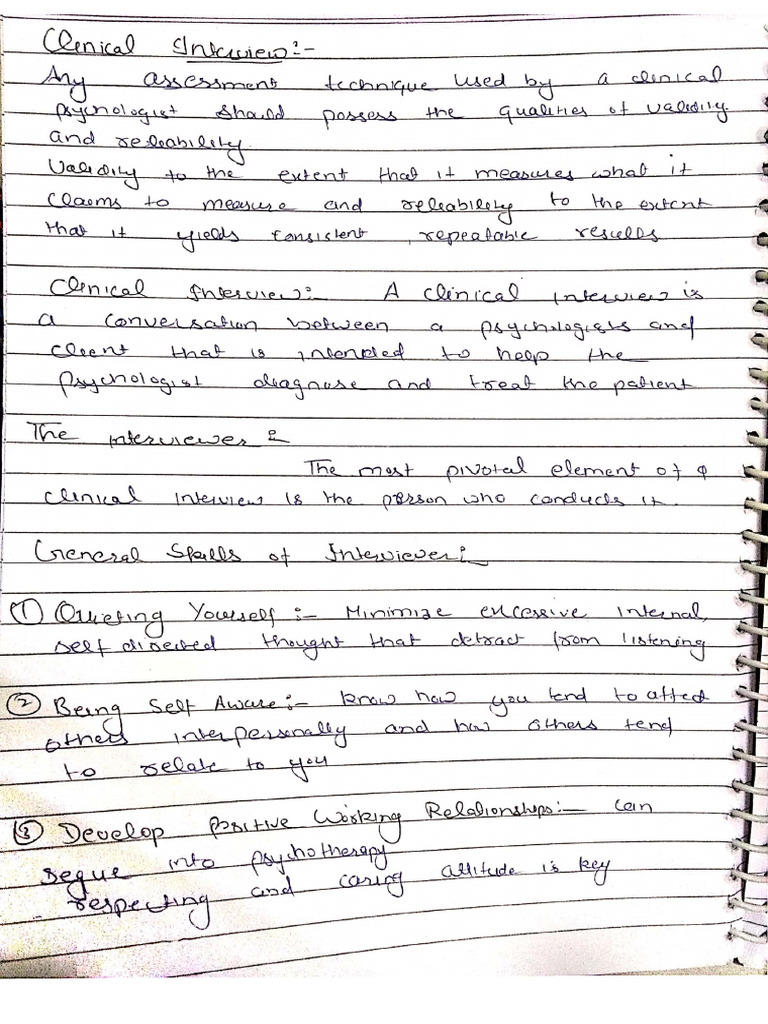 Clinical Interview:-
Any assessment technique used by a clinical
psychologist should possess the qualities of validity
and reliability.
Validity to the extent that it measures what it
claims to measure and reliability to the extent
that it yields consistent, repeatable results
Clinical Interview:- A clinical interview is
a conversation between a psychologists and
client that is intended to help the
psychologist diagnose and treat the patient
The interviewer :-
The most pivotal element of a
clinical interview is the person who conducts it.
General Skills of Interviewer:-
① Quieting Yourself :- Minimize excessive internal,
self directed thought that detract from listening
② Being Self Aware:- know how you tend to affect
others interpersonally and how others tend
to relate to you
③ Develop positive Working Relationships:- can
segue into psychotherapy
respecting and caring attitude is key